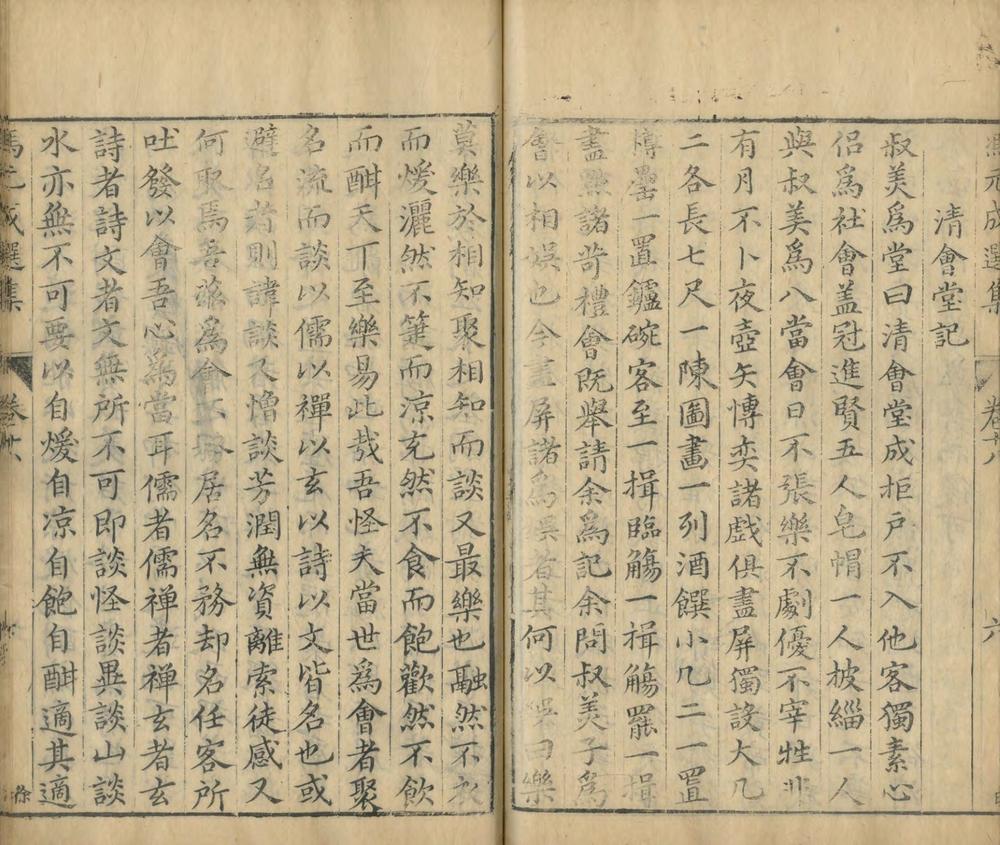 馮元成選集 卷十八 六
清會堂記
叔美爲堂曰清會堂成拒戶不入他客獨素心
侶爲社會盖冠進賢五人皂帽一人披緇一人
與叔美爲八當會日不張樂不劇優不宰牲非
有月不卜夜壺矢愽奕諸戲俱盡屏獨設大几
二各長七尺一陳圖畫一列酒饌小几二一置
樽罍一置鑪碗客至一揖臨觴一揖觴罷一揖
盡黜諸苛禮會既舉請余爲記余問叔美子爲
會以相娛也今盡屏諸爲娛者其何以娛曰樂
莫樂於相知聚相知而談又最樂也融然不衣
而煖灑然不箑而涼充然不食而飽歡然不飲
而酣天丁至樂易此哉吾怪夫當世爲會者聚
名流而談以儒以禪以玄以詩以文皆名也或
避名者則諱談又憎談芳潤無資離索徒感又
何取焉吾兹爲會不務居名不務却名任客所
吐發以會吾心爲當耳儒者儒禅者禅玄者玄
詩者詩文者文無所不可即談怪談異談山談
水亦無不可要以自煖自凉自飽自酣適其適
馮元成選集 卷十八